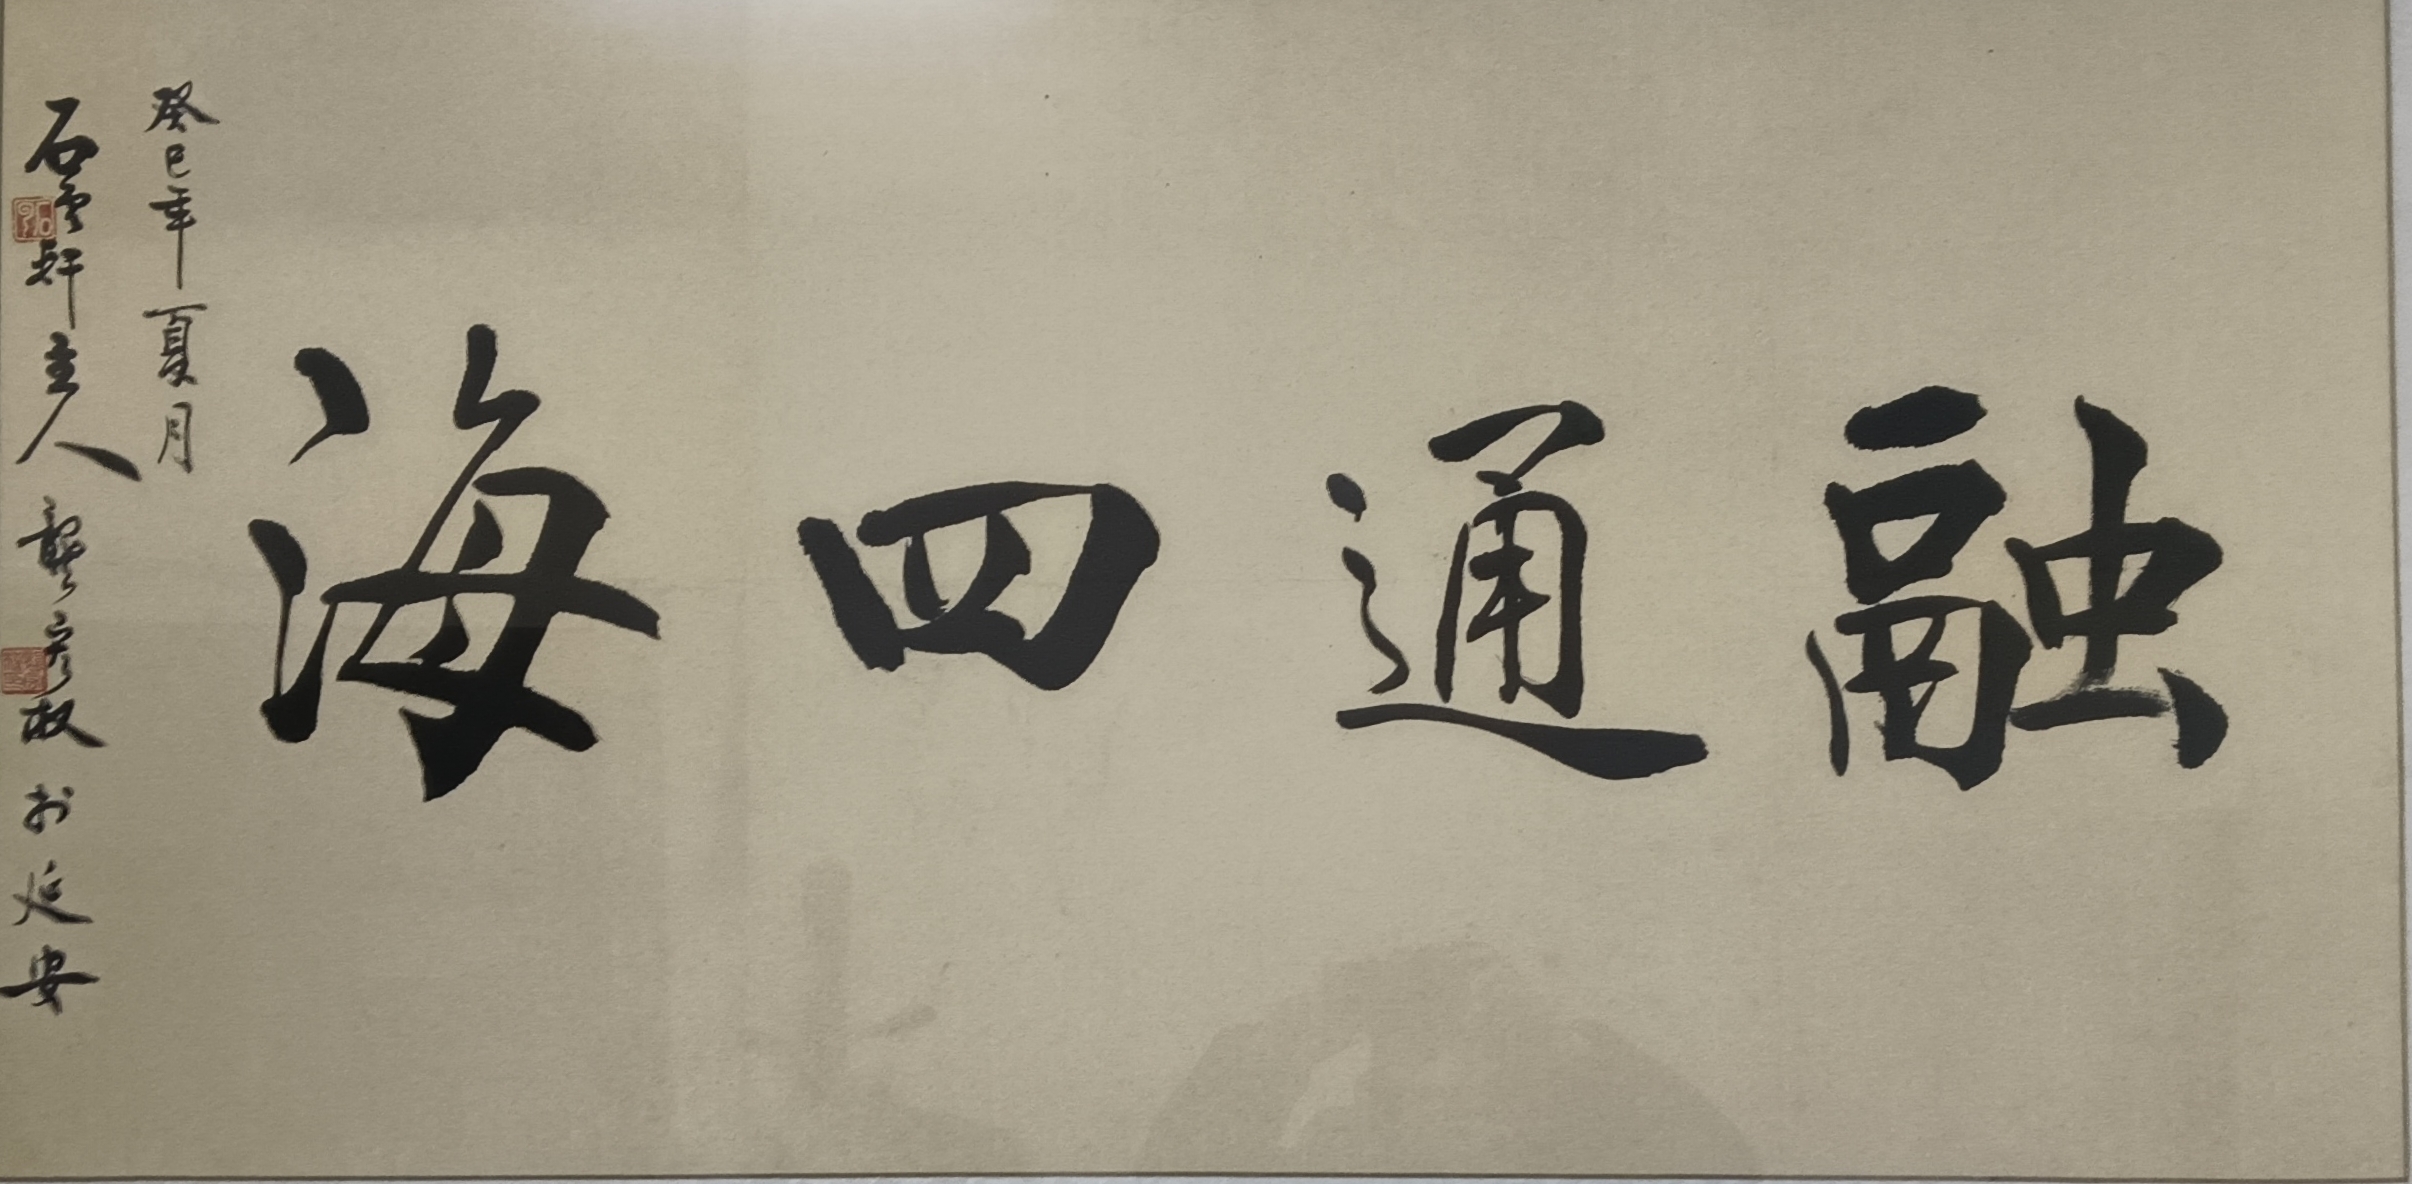 融通四海
癸巳年夏月
石雲軒主人龔彦叔於延安